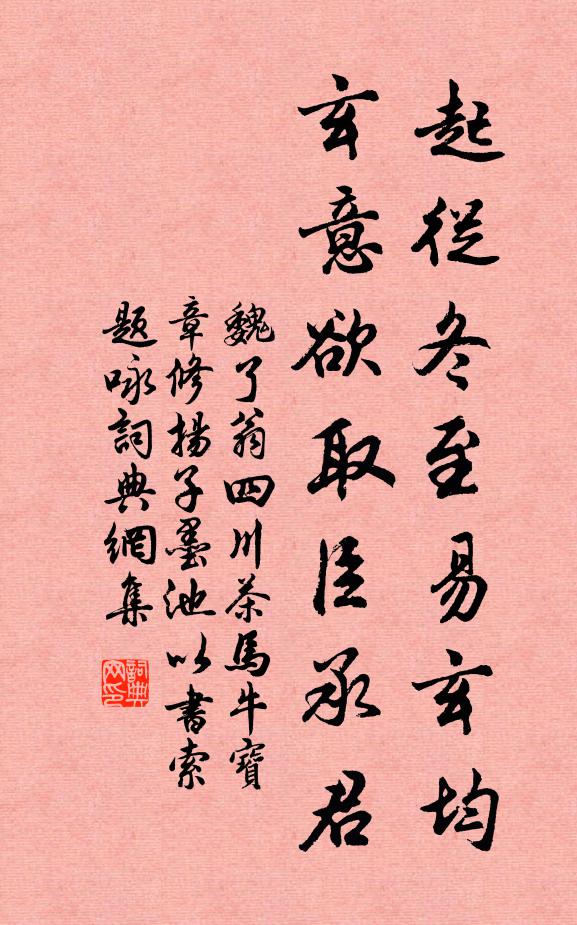 起從冬至易玄均
玄意欲取臣承君
魏了翁四川茶馬牛寶
章修揚子墨池以書索
題詠詞典網集
詞典
网印